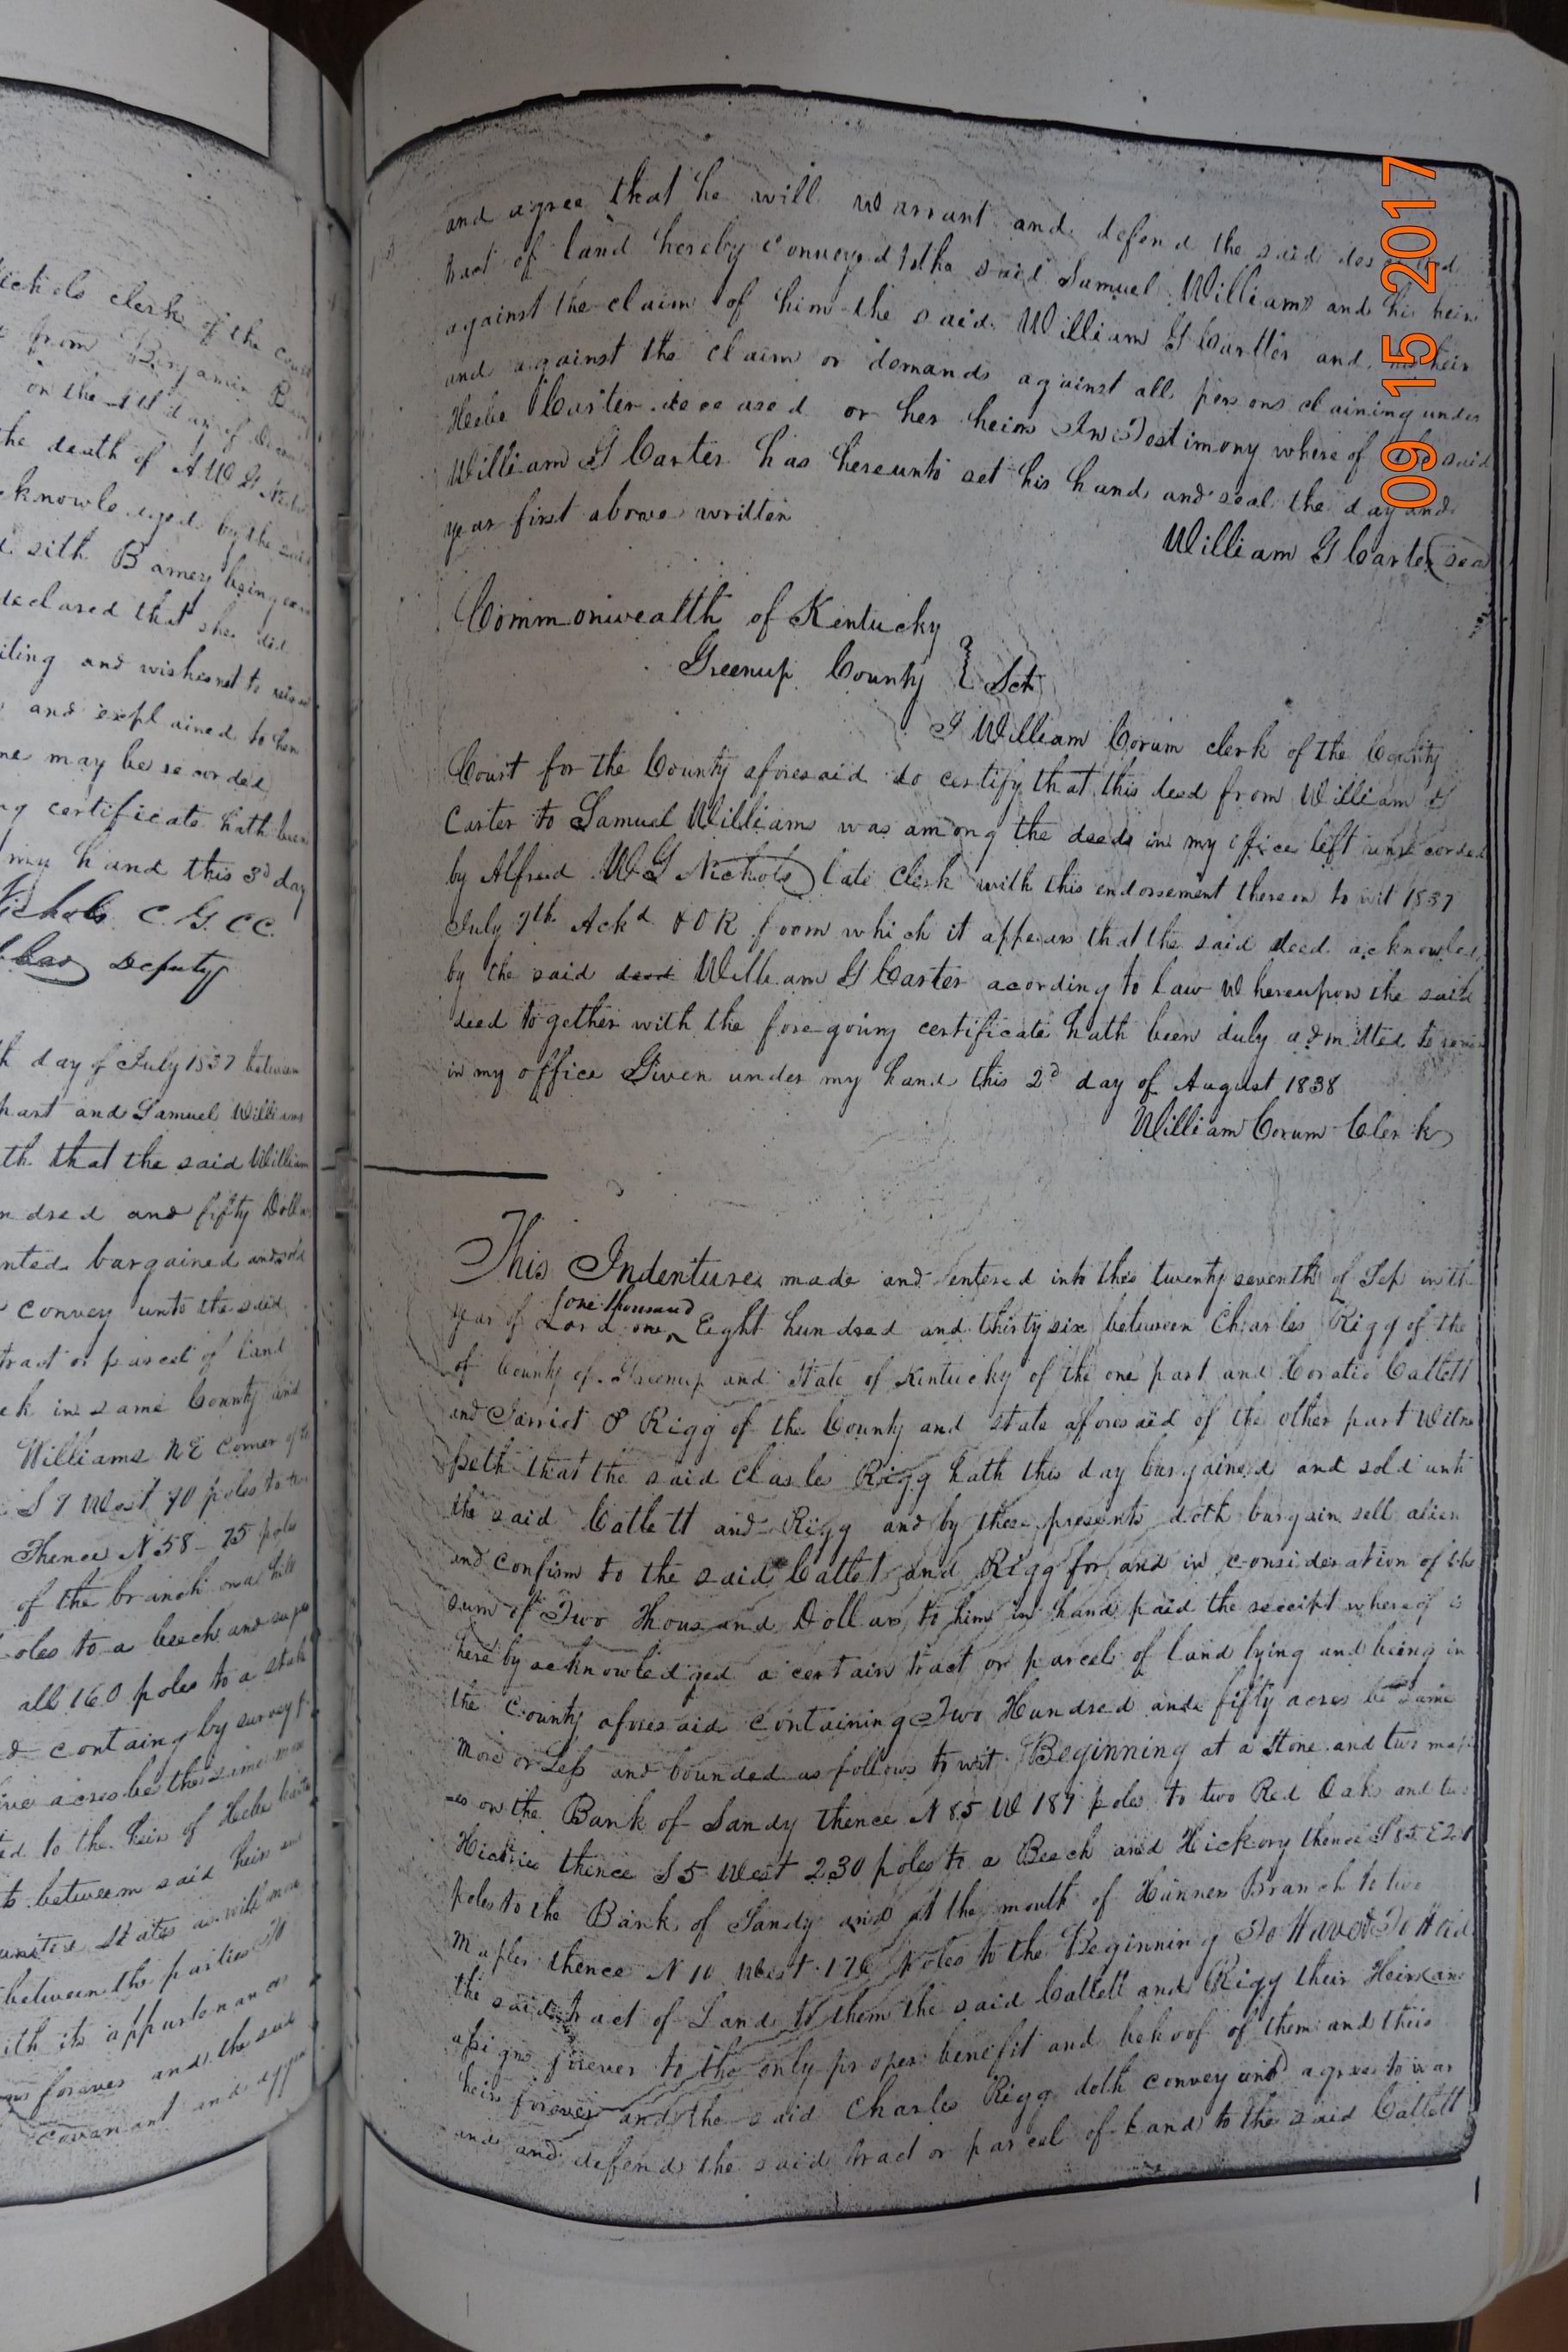 ichols clerk of the court
from Benjamin
on the day of
the death of A W G Nichols
cknowledged by the said
sith Barney being
declared that she did
iting and wishes not to
and explained to her
me may be recorded
ng certificate hath been
my hand this 3d day
Nichols C. G. CC.
Deputy
h day of July 1837 between
part and Samuel Williams
th that the said William
ndred and fifty Dolla
nted bargained and sold
convey unto the said
tract or parcel of land
ek in same County and
Williams NE Corner of the
S 7 West 70 poles to
Thence N 58 - 75 poles
of the branch on a hill
oles to a beech and
all 160 poles to a stake
d containg by survey
acres be the same
ed to the heir of Hebe
ts between said heir
united States as will
between the parties
ith its appurtenances
forever and the said
covanant and
and agree that he will warrant and defend the said described
tract of land hereby conveyed to the said Samuel Williams and his heirs
against the claim of him the said William G Cartter and his heirs
and against the claim or demands against all persons claining under
Heebe Carter deceased or her heirs In Testimony where of the said
William G Carter has hereunto set his hand and seal the day and
year first above written
William G Carter (seal
Commonwealth of Kentucky
Greenup County } Sct
I William Corum clerk of the County
Court for the County aforesaid do certify that this deed from William G
Carter to Samuel Williams was among the deeds in my office left unrecorded
by Alfred W G Nichols late Clerk with this endorsement thereon to wit 1837
July 7th Ackd & O R from which it appears that the said deed acknowled
by the said deed William G Carter acording to law Whereupon the said
deed together with the fore going certificate hath been duly admitted to record
in my office Given under my hand this 2d day of August 1838
William Corum Clerk
This Indenture made and entered into this twenty seventh of Sep in th
one thousand
year of Lord one Eight hundred and thirty six between Charles Rigg of the
of County of Greenup and State of Kentucky of the one part and Horatio Catlett
and Jarriot P Rigg of the County and State aforesaid of the other part Witne
sseth that the said Charles Rigg hath this day bargained and sold unto
the said Catlett and Rigg and by these presents doth bargain sell alien
and confirm to the said Catlet and Rigg for and in consideration of the
sum of Two Thousand Dollars to him in hand paid the receipt whereof is
here by acknowledged a certain tract or parcel of land lying and being in
the County aforesaid containing Two Hundred and fifty acres be same
more or Less and bounded as follows to wit Beginning at a Stone and two mapl
es on the Bank of Sandy thence N 85 W 187 poles to two Red Oaks and two
Hickries thence S 5 West 230 poles to a Beech and Hickory thence S 85 E
poles to the Bank of Sandy and at the mouth of Branch to two
Maples thence N 10 West 176 Poles to the Beginning To Have & To Hold
the said tract of Land to them the said Catlett and Rigg their Heirs and
assigns forever to the only proper benefit and behoof of them and their
heirs forever and the said Charles Rigg doth convey and agrees to war
and and defend the said tract or parcel of Land to the said Catlett
09 15 2017